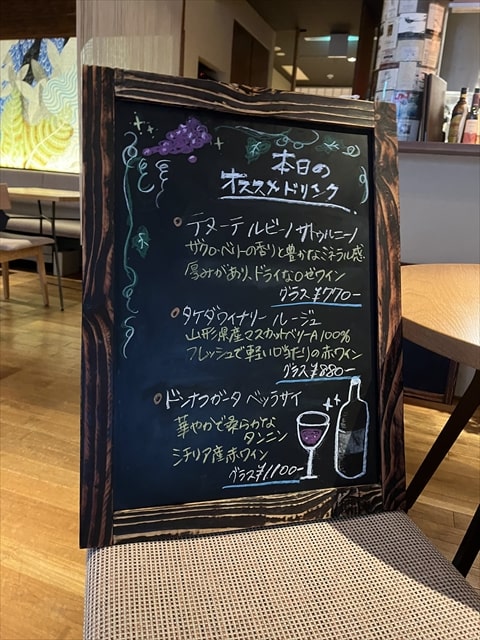 本日の
オススメドリンク
テヌーテ ルビーノ サトゥルニーノ
ザクロ・ベリーの香りと豊かなミネラル感。
厚みがあり、ドライなロゼワイン
グラス ¥770-
タケダワイナリー ルージュ
山形県産マスカットベリーA100%
フレッシュで軽い口当たりの赤ワイン
グラス ¥880-
ドンナフガータ ベッラサイ
華やかで柔らかな
タンニン
シチリア産赤ワイン
グラス¥1100-